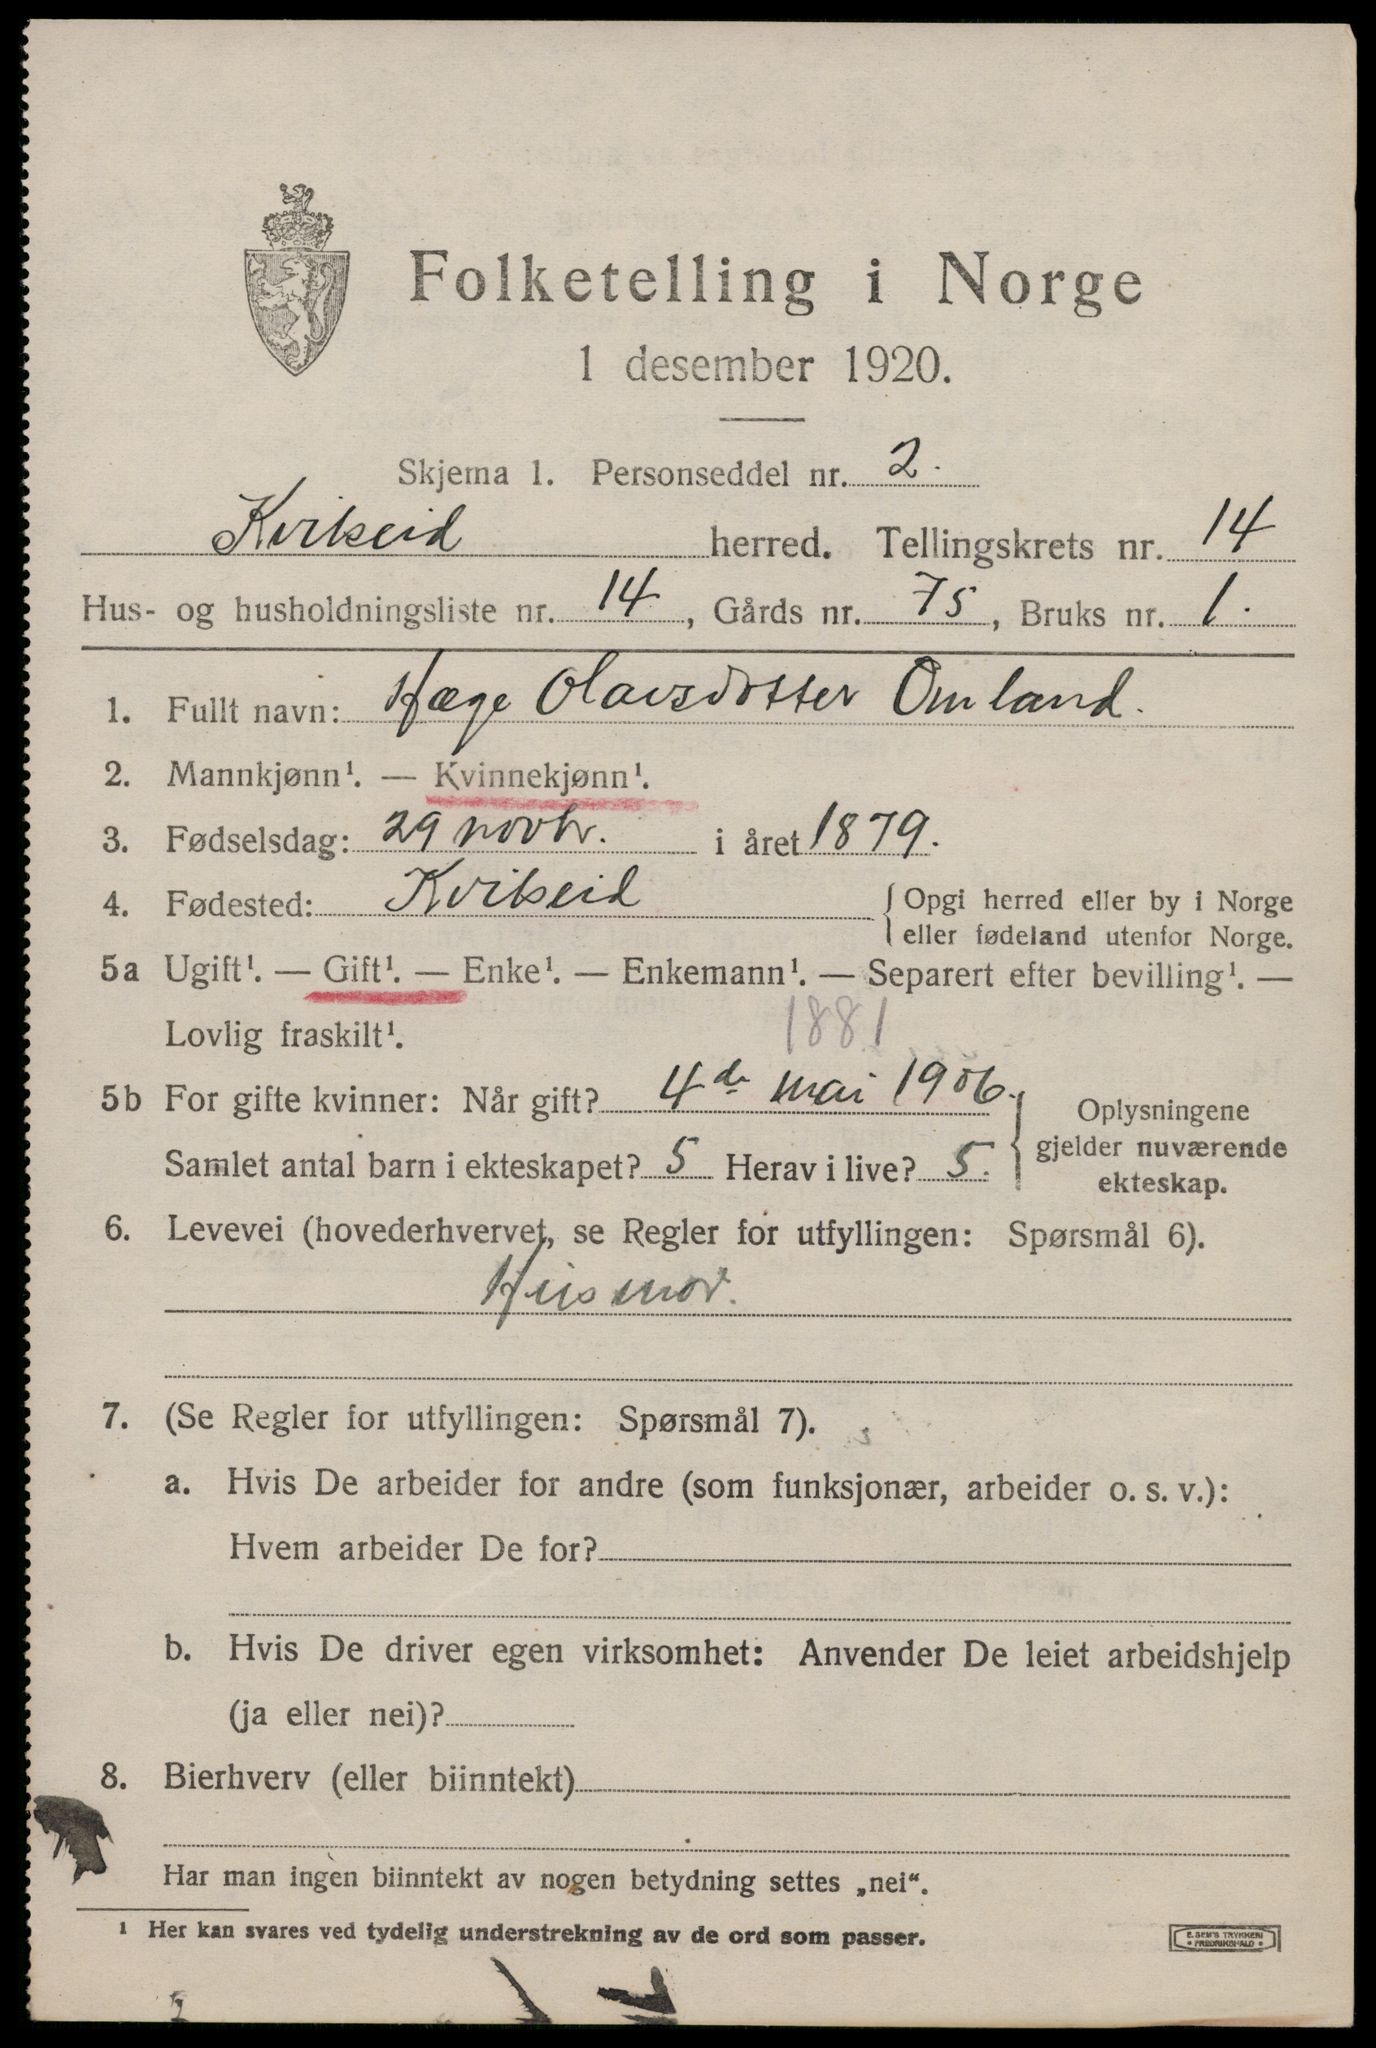 Folketelling i Norge
1 desember 1920.
Skjema 1. Personseddel nr. 2.
Kviteseid herred. Tellingskrets nr. 14
Hus- og husholdningsliste nr. 14, Gårds nr. 75, Bruks nr. 1.
1. Fullt navn: Hæge Olavsdotter Omland.
2. Mannkjønn¹. — Kvinnekjønn¹.
3. Fødselsdag: 29 novbr. i året 1879.
4. Fødested: Kviteseid { Opgi herred eller by i Norge
eller fødeland utenfor Norge.
5a Ugift¹. — Gift¹. — Enke¹. — Enkemann¹. — Separert efter bevilling¹. —
Lovlig fraskilt¹. 1881
5b For gifte kvinner: Når gift? 4de mai 1906.
Samlet antal barn i ekteskapet? 5 Herav i live? 5.
} Oplysningene
gjelder nuværende
ekteskap.
6. Levevei (hovederhvervet, se Regler for utfyllingen: Spørsmål 6).
Husmor.
7. (Se Regler for utfyllingen: Spørsmål 7).
a. Hvis De arbeider for andre (som funksjonær, arbeider o. s. v.):
Hvem arbeider De for?
b. Hvis De driver egen virksomhet: Anvender De leiet arbeidshjelp
(ja eller nei)?
8. Bierhverv (eller biinntekt)
Har man ingen biinntekt av nogen betydning settes „nei“.
¹ Her kan svares ved tydelig understrekning av de ord som passer.
E. SEM'S TRYKKERI
• FREDRIKSHALD •